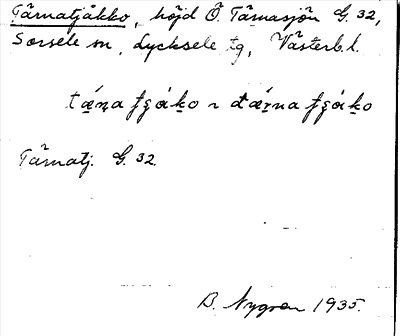 Tärnatjåkko, höjd Ö. Tärnasjön G. 32,
Sorsele sn, Lycksele tg, Västerb. l.
Tärnatj. G. 32.
B. Nygren 1935.